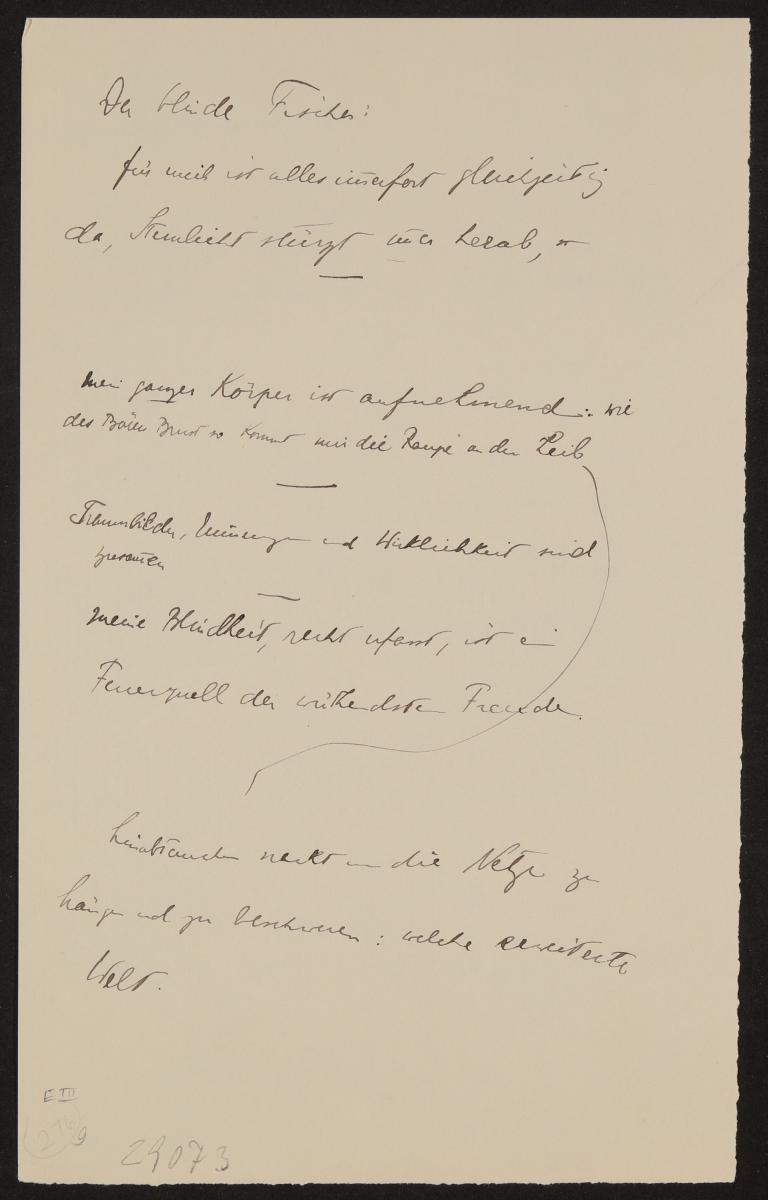 Der blinde Fischer:
für mich ist alles im̅erfort gleichzeitig
da, Sternlicht stürzt im̅er herab,
mein ganzer Körper ist aufnehmend: wie
des Brust so kommt mir die an den Leib
Traumbilder, und Wirklichkeit sind
zusam̅en
meine Blindheit, recht erfasst, ist ein
Feuerquell der wüthendsten Freude.
hinabtauchen nackt um die Netze zu
hängen und zu beschweren: welche erweiterte
Welt.
E III
9
29073